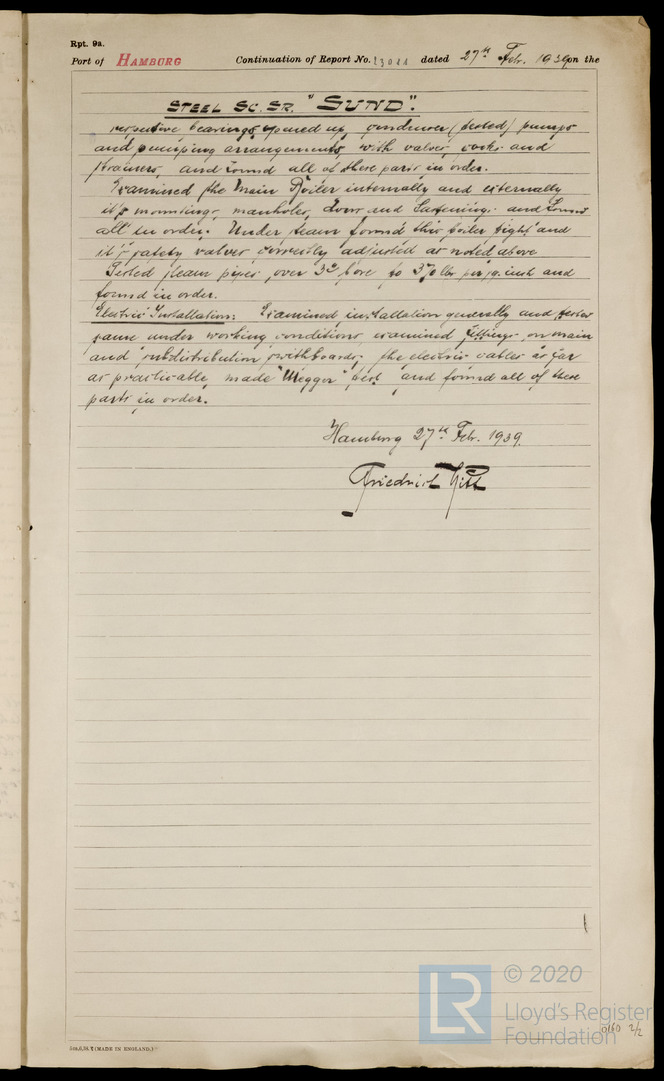 Rpt. 9a.
Port of HAMBURG Continuation of Report No. 23011 dated 27th Febr. 1939 on the
STEEL SC. SR. "SUND".
respective bearings opened up, condenser (tested) pumps
and pumping arrangements with valves, cocks and
strainers, and found all of these parts in order.
Examined the Main Boiler internally and externally
it's mountings, manholes, doors and fastenings and found
all in order. Under steam found this boiler tight and
it's safety valves correctly adjusted as noted above
Tested steam pipes over 3" bore to 370 lbs per sq. inch and
found in order.
Electric Installation: Examined installation generally and tested
same under working conditions, examined fittings on main
and subdistribution switchboards, the electric cables as far
as practicable, made "Megger" test and found all of these
parts in order.
Hamburg 27th Febr. 1939.
Friedrich
LR © 2020
Lloyd's Register
Foundation
0160 2/2
(MADE IN ENGLAND.)